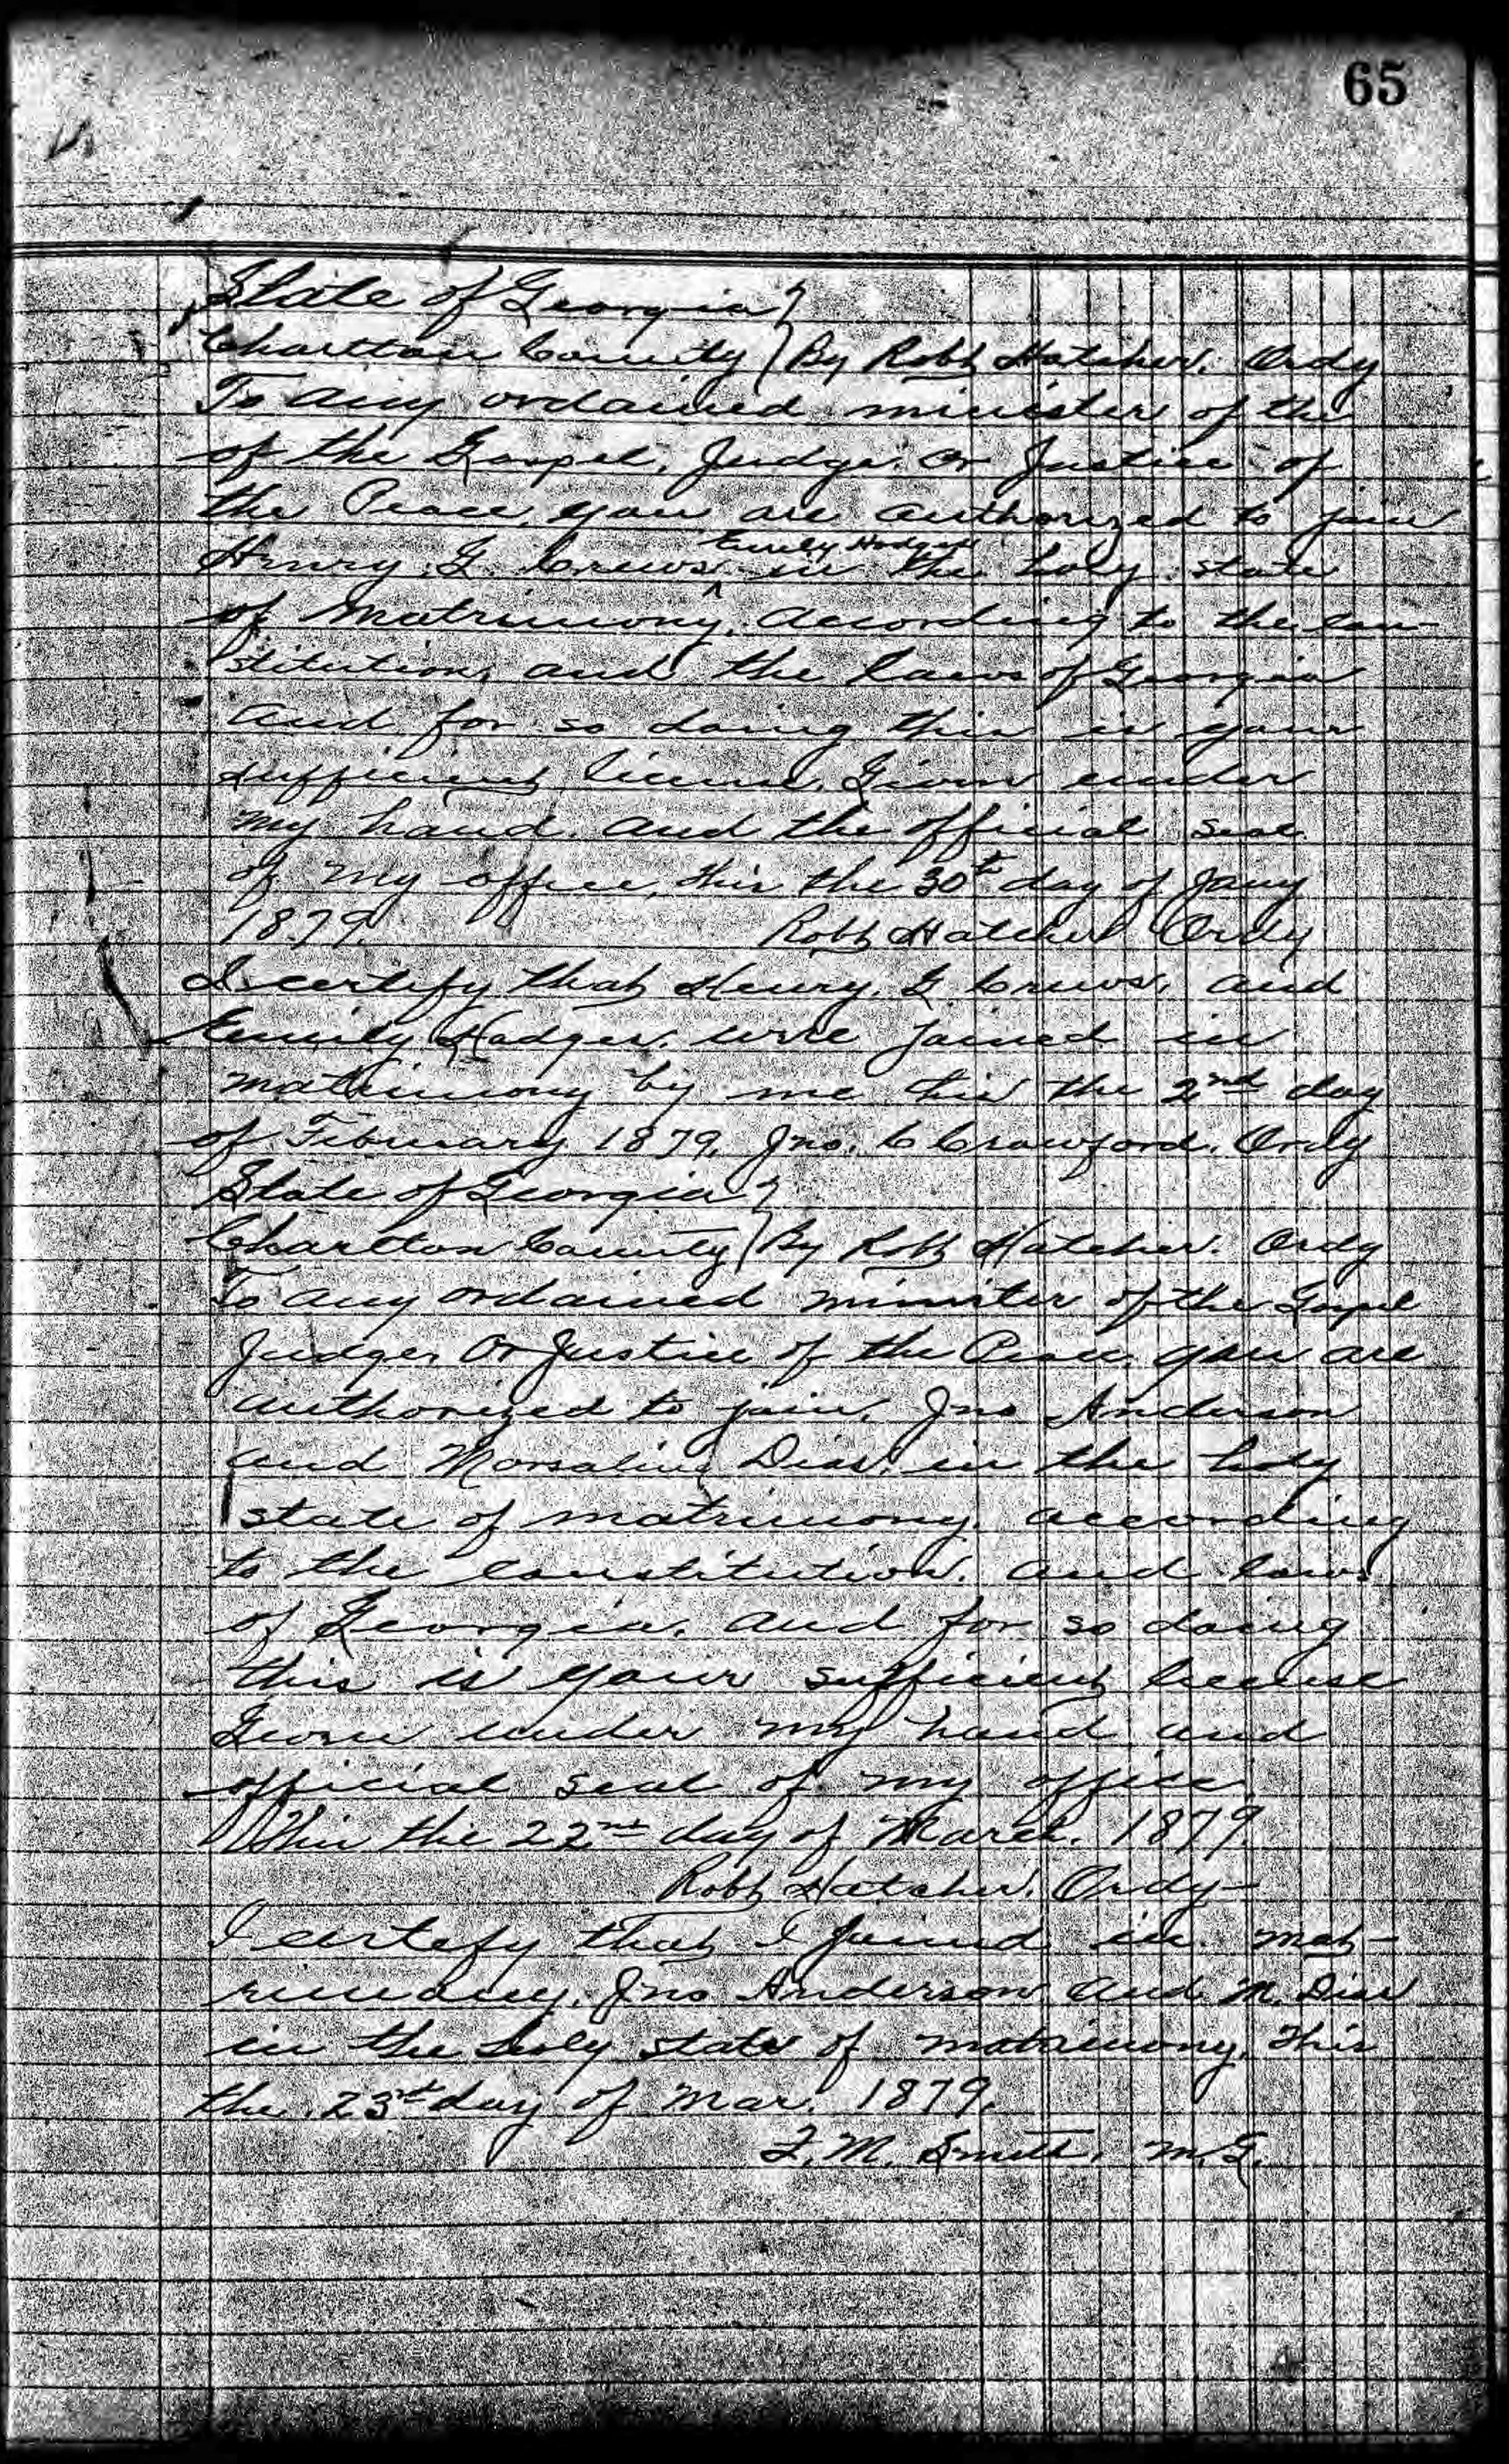 65
State of Georgia }
Charlton County } By Robt Hatcher. Ordy
To any ordained minister of the
of the Gospel, Judge or Justice of
the Peace, you are authorized to join
Emily Hodges
Henry G. Crews ^ in the holy state
of Matrimony, according to the con-
stitution, and the laws of Georgia
and for so doing this is your
sufficient license, Given under
my hand and the official seal
of my office, this the 30th day of Jany
1879. Robt Hatcher Ordy
I certify that Henry. G. Crews, and
Emily Hodges were joined in
matrimony by me this the 2nd day
of February 1879, Jno. C Crawford. Ordy
State of Georgia }
Charlton County } By Robt Hatcher. Ordy
To any ordained minister of the Gospel
Judge, Or Justice of the Peace, you are
authorized to join, Jno Anderson
and Dias, in the holy
state of matrimony, according
to the constitution, and laws
of Georgia, and for so doing
this is your sufficient license
Given under my hand and
official seal of my office
This the 22nd day of March. 1879.
Robt Hatcher. Ordy-
I certify that I joined in mat-
rimony, Jno Anderson and M. Dias
in the holy state of matrimony, this
the 23rd day of Mar. 1879.
F. M. Smith, M. G.